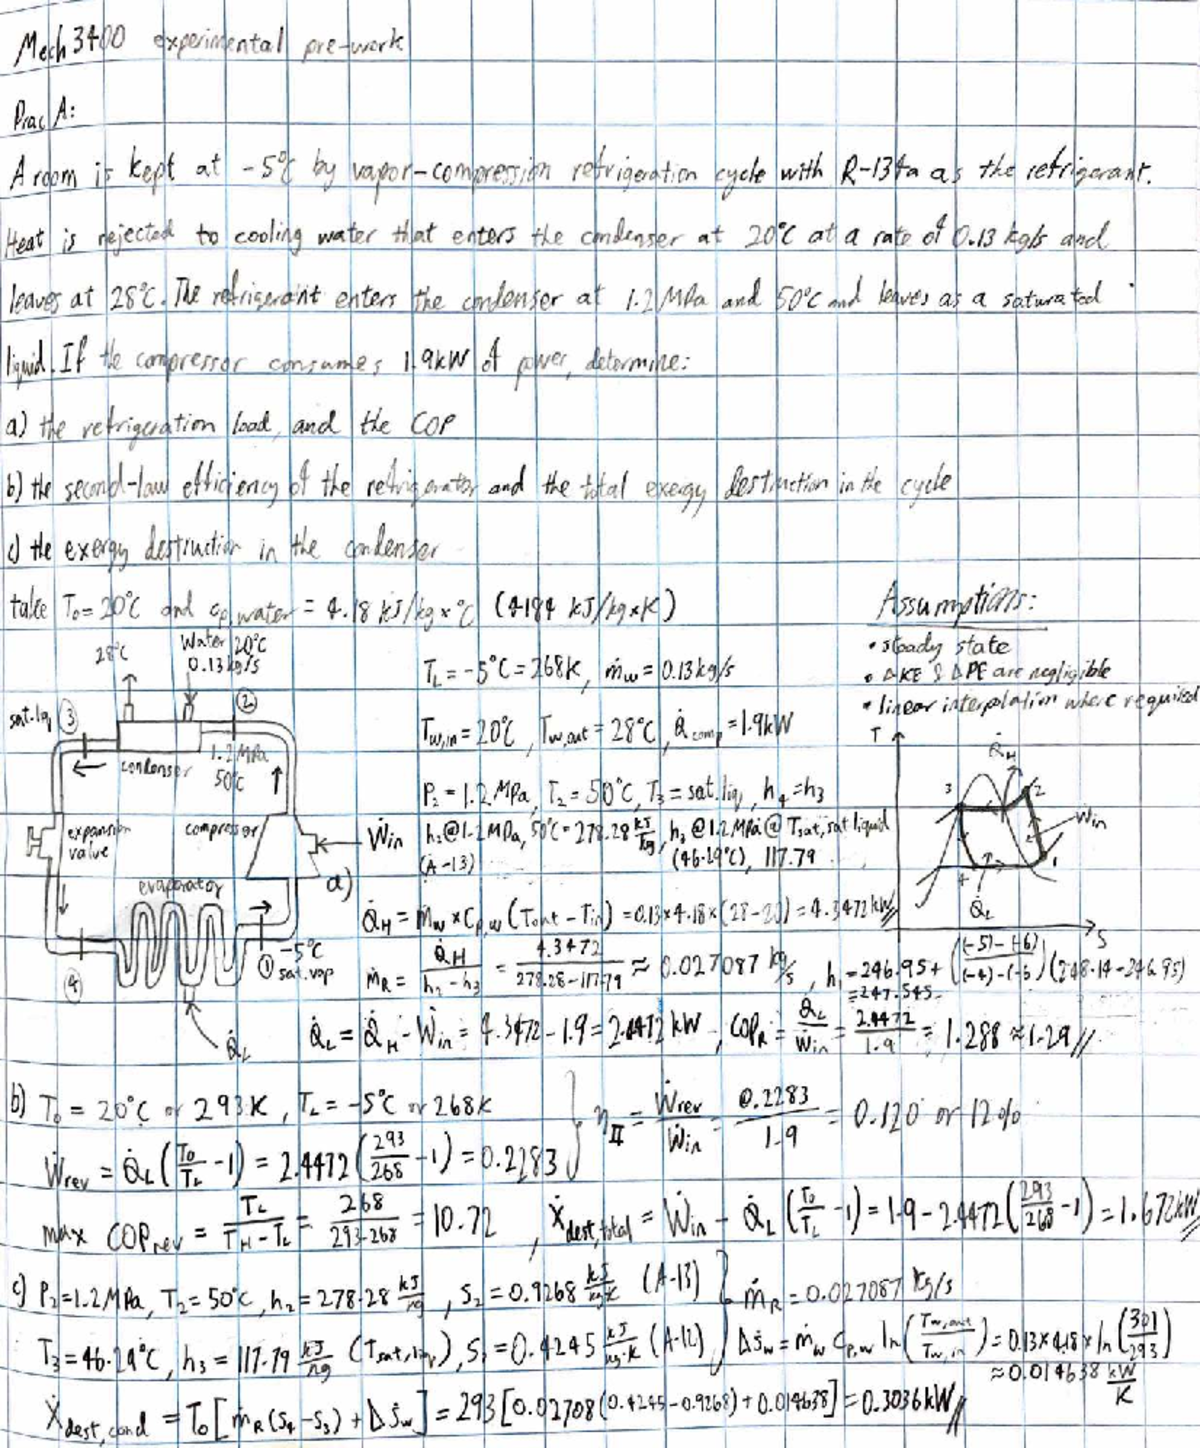 Mech 3400 experimental pre-work
Prac A:
A room is kept at -5°C by vapor-compression refrigeration cycle with R-134a as the refrigerant.
Heat is rejected to cooling water that enters the condenser at 20°C at a rate of 0.13 kg/s and
leaves at 28°C. The refrigerant enters the condenser at 1.2 MPa and 50°C and leaves as a saturated
liquid. If the compressor consumes 1.9kW of power, determine:
a) the refrigeration load, and the COP
b) the second-law efficiency of the refrigerator and the total exergy destruction in the cycle
c) the exergy destruction in the condenser
take T₀ = 20°C and cp,water = 4.18 kJ/kg×°C (4.184 kJ/kg×K)
Assumptions:
• steady state
• ΔKE & ΔPE are negligible
• linear interpolation where required
28°C
Water 20°C
0.13kg/s
sat.liq ③
②
condenser
1.2 MPa
50°C
expansion
valve
compressor
Ẇin
evaporator
④
① -5°C
sat.vap
Q̇L
T_L = -5°C = 268K, ṁw = 0.13kg/s
Tw,in = 20°C, Tw,out = 28°C, Q̇comp = 1.9kW
P₂ = 1.2 MPa, T₂ = 50°C, T₃ = sat.liq, h₄ = h₃
h₂@1.2MPa, 50°C = 278.28 kJ/kg, h₃@1.2MPa @ Tsat, sat liquid
(A-13) (46.29°C), 117.79
T
Q̇H
3
2
Ẇin
1
4
Q̇L
S
a)
Q̇H = ṁw × Cp,w (Tout - Tin) = 0.13×4.18×(28-20) = 4.3472 kW
ṁR = Q̇H/(h₂-h₃) = 4.3472/(278.28-117.79) ≈ 0.027087 kg/s, h₁ = 246.95 + ((-5)-(-6)/(-4)-(-6))(248.14-246.95)
= 247.545
Q̇L = Q̇H - Ẇin = 4.3472 - 1.9 = 2.4472 kW, COP_R = Q̇L/Ẇin = 2.4472/1.9 = 1.288 ≈ 1.29
b) T₀ = 20°C or 293K, T_L = -5°C or 268K
η_II = Ẇrev/Ẇin = 0.2283/1.9 = 0.120 or 12%
Ẇrev = Q̇L (T₀/T_L - 1) = 2.4472 (293/268 - 1) = 0.2283
max COPrev = T_L/(T_H - T_L) = 268/(293-268) = 10.72, Ẋdest,total = Ẇin - Q̇L (T₀/T_L - 1) = 1.9 - 2.4472 (293/268 - 1) = 1.672kW
c) P₂ = 1.2MPa, T₂ = 50°C, h₂ = 278.28 kJ/kg, S₂ = 0.9268 kJ/kg·K (A-13) } ṁR = 0.027087 kg/s
T₃ = 46.29°C, h₃ = 117.79 kJ/kg (Tsat,liq), S₃ = 0.4245 kJ/kg·K (A-12) } ΔṠw = ṁw Cp,w ln(Tw,out/Tw,in) = 0.13×4.18×ln(301/293)
≈ 0.014638 kW/K
Ẋdest,cond = T₀[ṁR(S₄-S₃) + ΔṠw] = 293[0.02708(0.4245-0.9268) + 0.014638] = 0.3036kW